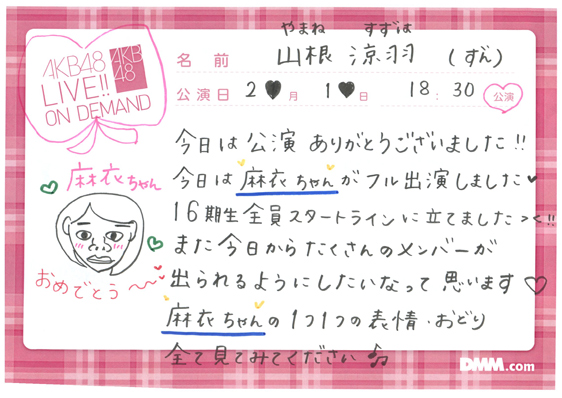 AKB48
LIVE!!
ON DEMAND
AKB
48
やまね すずは
名前 山根 涼羽 (ずん)
公演日 2♥月 1♥日 18:30 公演
今日は公演ありがとうございました!!
今日は麻衣ちゃんがフル出演しました♥
16期生全員スタートラインに立てました><!!
また今日からたくさんのメンバーが
出られるようにしたいなって思います♡
麻衣ちゃんの1つ1つの表情・おどり
全て見てみてください♫
麻衣ちゃん
おめでとう〜
DMM.com